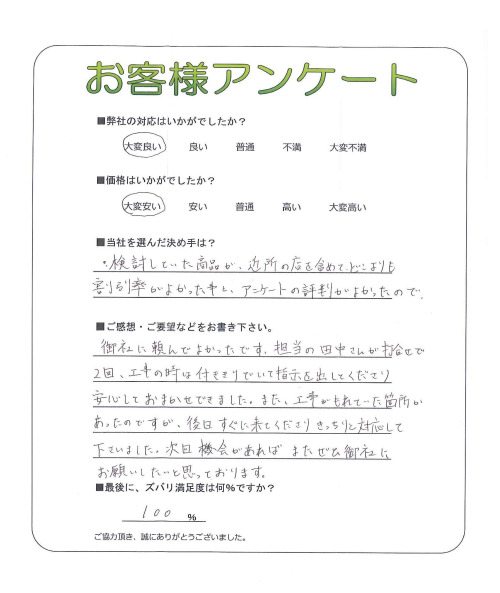 お客様アンケート
■弊社の対応はいかがでしたか?
大変良い 良い 普通 不満 大変不満
■価格はいかがでしたか?
大変安い 安い 普通 高い 大変高い
■当社を選んだ決め手は?
・検討していた商品が、近所の店を含めて、どこよりも
割引率がよかった事と、アンケートの評判がよかったので。
■ご感想・ご要望などをお書き下さい。
御社に頼んでよかったです。担当の田中さんが打合せで
2回、工事の時は付ききりでいて指示を出してくださり
安心しておまかせできました。また、工事がもれていた箇所が
あったのですが、後日すぐに来てくださりきっちりと対応して
下さいました。次回機会があればまたぜひ御社に
お願いしたいと思っております。
■最後に、ズバリ満足度は何%ですか?
100 %
ご協力頂き、誠にありがとうございました。